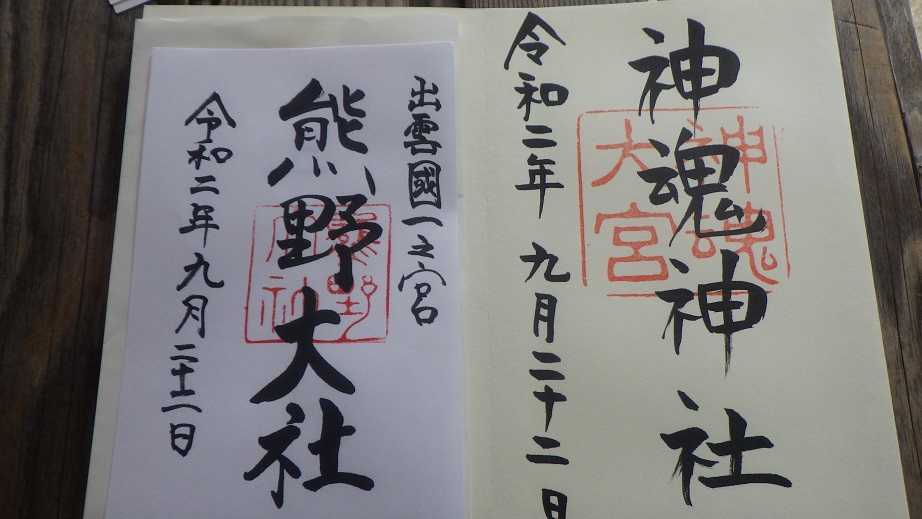 神魂神社
神魂
大宮
令和二年 九月二十二日
出雲國一之宮
熊野大社
熊野
大社
令和二年九月二十二日